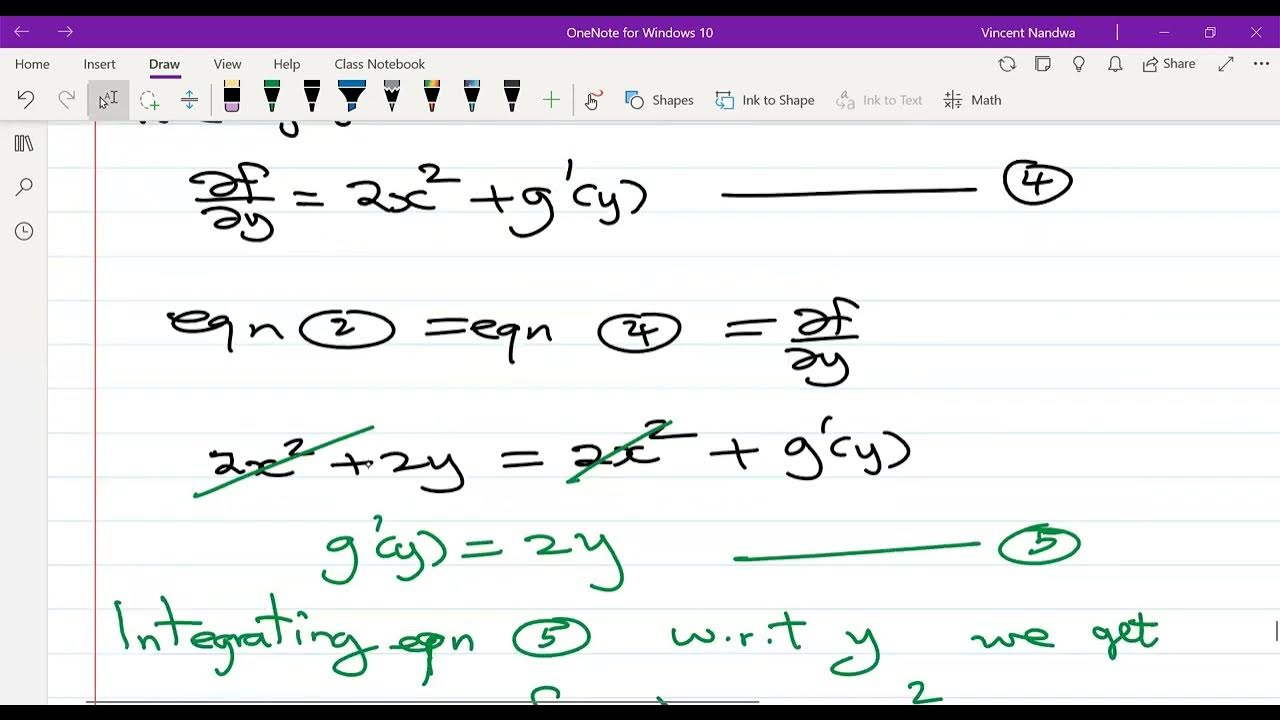 OneNote for Windows 10 Vincent Nandwa
Home Insert Draw View Help Class Notebook Share
Shapes Ink to Shape Ink to Text Math
∂f/∂y = 2x² + g'(y) ④
eqn ② = eqn ④ = ∂f/∂y
2x² + 2y = 2x² + g'(y)
g'(y) = 2y ⑤
Integrating eqn ⑤ w.r.t y we get